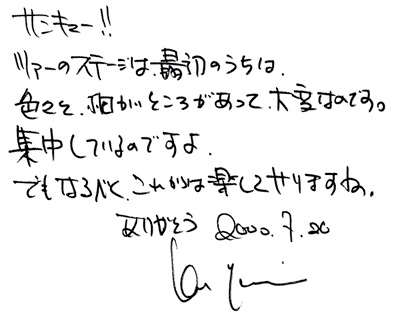 サンキュー!!
ツアーのステージは、最初のうちは、
色々と、細かいところがあって、大変なのです。
集中しているのですよ。
でもなるべく、これからは楽しくやりますね。
ありがとう 2000.7.20